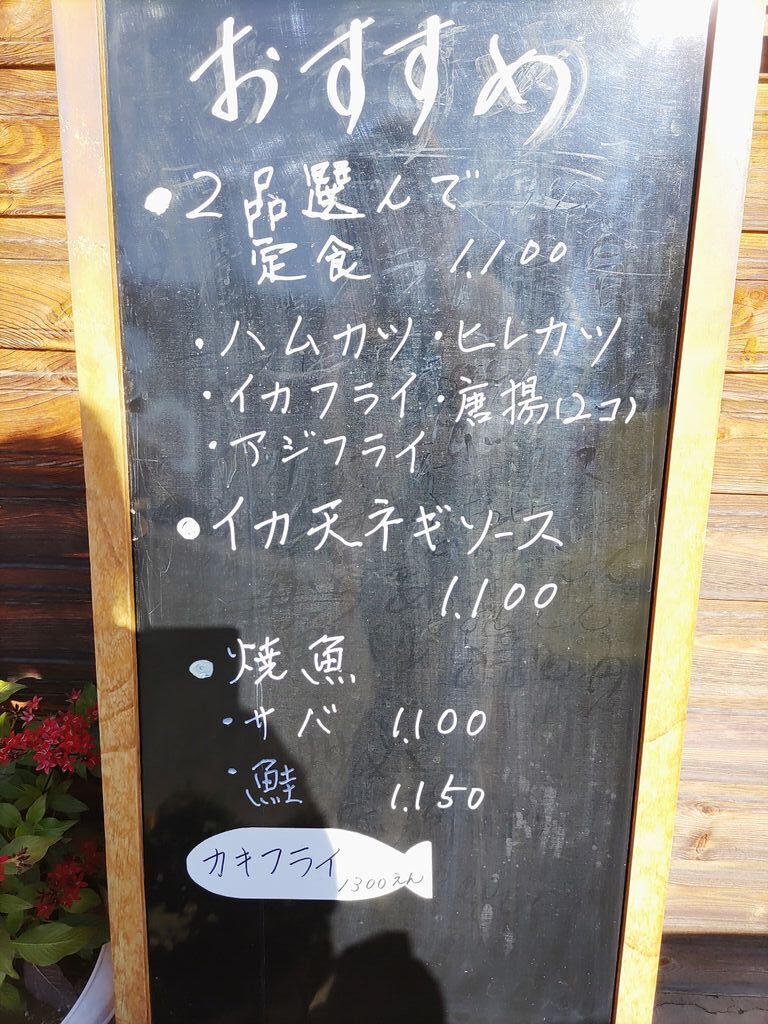 おすすめ
●2品選んで
定食 1.100
・ハムカツ・ヒレカツ
・イカフライ・唐揚(2コ)
・アジフライ
●イカ天ネギソース
1.100
●焼魚
・サバ 1.100
・鮭 1.150
カキフライ
1300えん